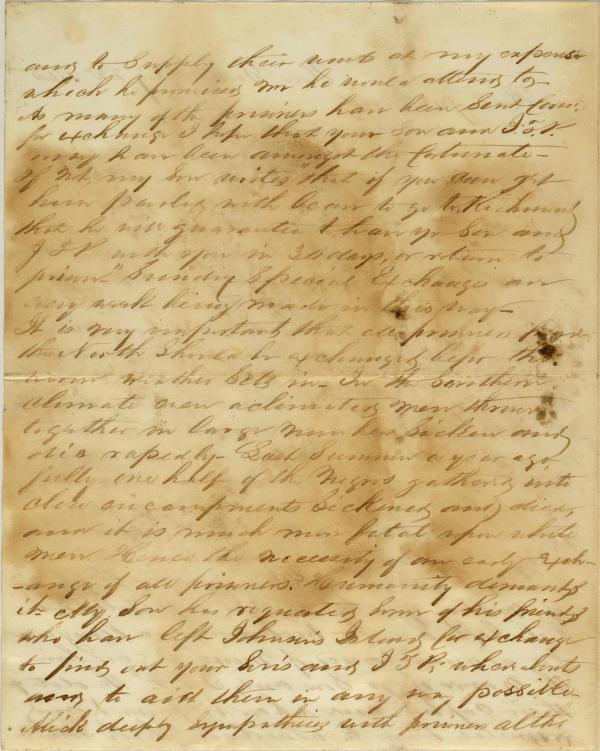 and to Supply their wants at my expense
which he promised me he would attend to-
As many of the prisoners have been Sent
for exchange I hope that your Son and J. T. P.
may have been amongst the fortunate-
If not, my Son writes "that if you can get
him paroled with leave to go to Richmond
that he will guarantee to have yr Son and
J T P with you in 30 days, or return to
prison" Sundry Special Exchanges are
every week being made in this way-
It is very important that all prisoners from
the North Should be exchanged before the
warm weather Sets in- In the Southern
climate even aclimated men thrown
together in large numbers Sicken and
die rapedly- Last Summer a year ago
fully one half of the Negros gathered into
close encampments Sickened and died,
and it is much more fatal upon white
men. Hence the necesity of an early Exch-
-ange of all prisoners. Humanity demands
it. My Son has requested Some of his friends
who have left Johnson's Island for exchange
to find out your Son's and J T P's whereabouts
and to aid them in any way possible-
deeply Sympathises with prisoners altho